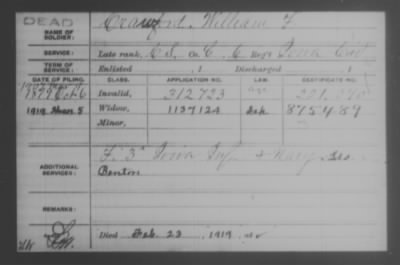 DEAD
NAME OF SOLDIER: Crawford, William F.
SERVICE: Late rank, Co. C, 6 Reg't Iowa Cav
TERM OF SERVICE: Enlisted , 1 Discharged
DATE OF FILING. CLASS. APPLICATION NO. LAW. CERTIFICATE NO.
1879 Oct 6 Invalid, 312723
1919 5 Widow, 1137124 875489
Minor,
ADDITIONAL SERVICES: F. 3" Iowa Inf & Navy
Benton
REMARKS:
Died Feb. 23, 1919, at